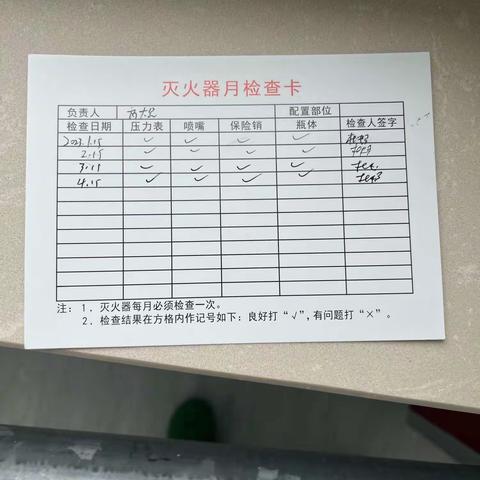 灭火器月检查卡
负责人 配置部位
检查日期 压力表 喷嘴 保险销 瓶体 检查人签字
2023.1.15 ✓ ✓ ✓ ✓
2.15 ✓ ✓ ✓ ✓
3.15 ✓ ✓ ✓ ✓
4.15 ✓ ✓ ✓ ✓
注：1．灭火器每月必须检查一次。
2．检查结果在方格内作记号如下：良好打“√”，有问题打“×”。